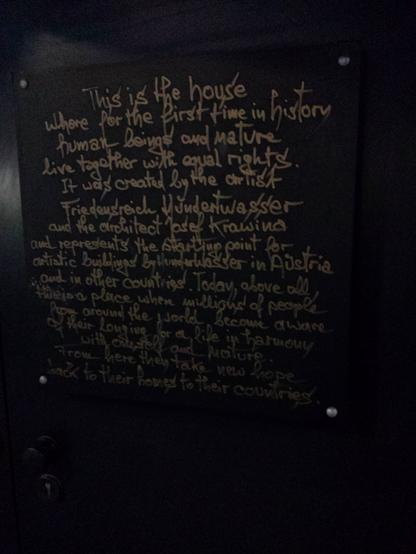 This is the house
where for the first time in history
human beings and nature
live together with equal rights.
It was created by the artist
Friedensreich Hundertwasser
and the architect Josef Krawina
and represents the starting point for
artistic buildings by Hundertwasser in Austria
and in other countries. Today, above all
this is a place when millions of people
from around the world become aware
of their longing for a life in harmony
with oneself and nature.
From here they take new hope
back to their homes to their countries.